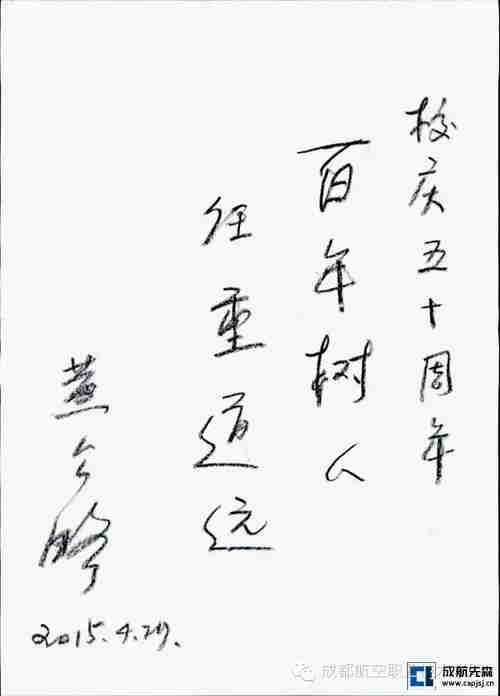 校庆五十周年
百年树人
任重道远
2015.4.29.
成都航空职
成航先森
www.capjsj.cn